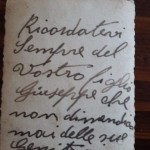 Ricordatevi
Sempre del
Vostro figlio
Giuseppe che
non dimentica
mai delle sue